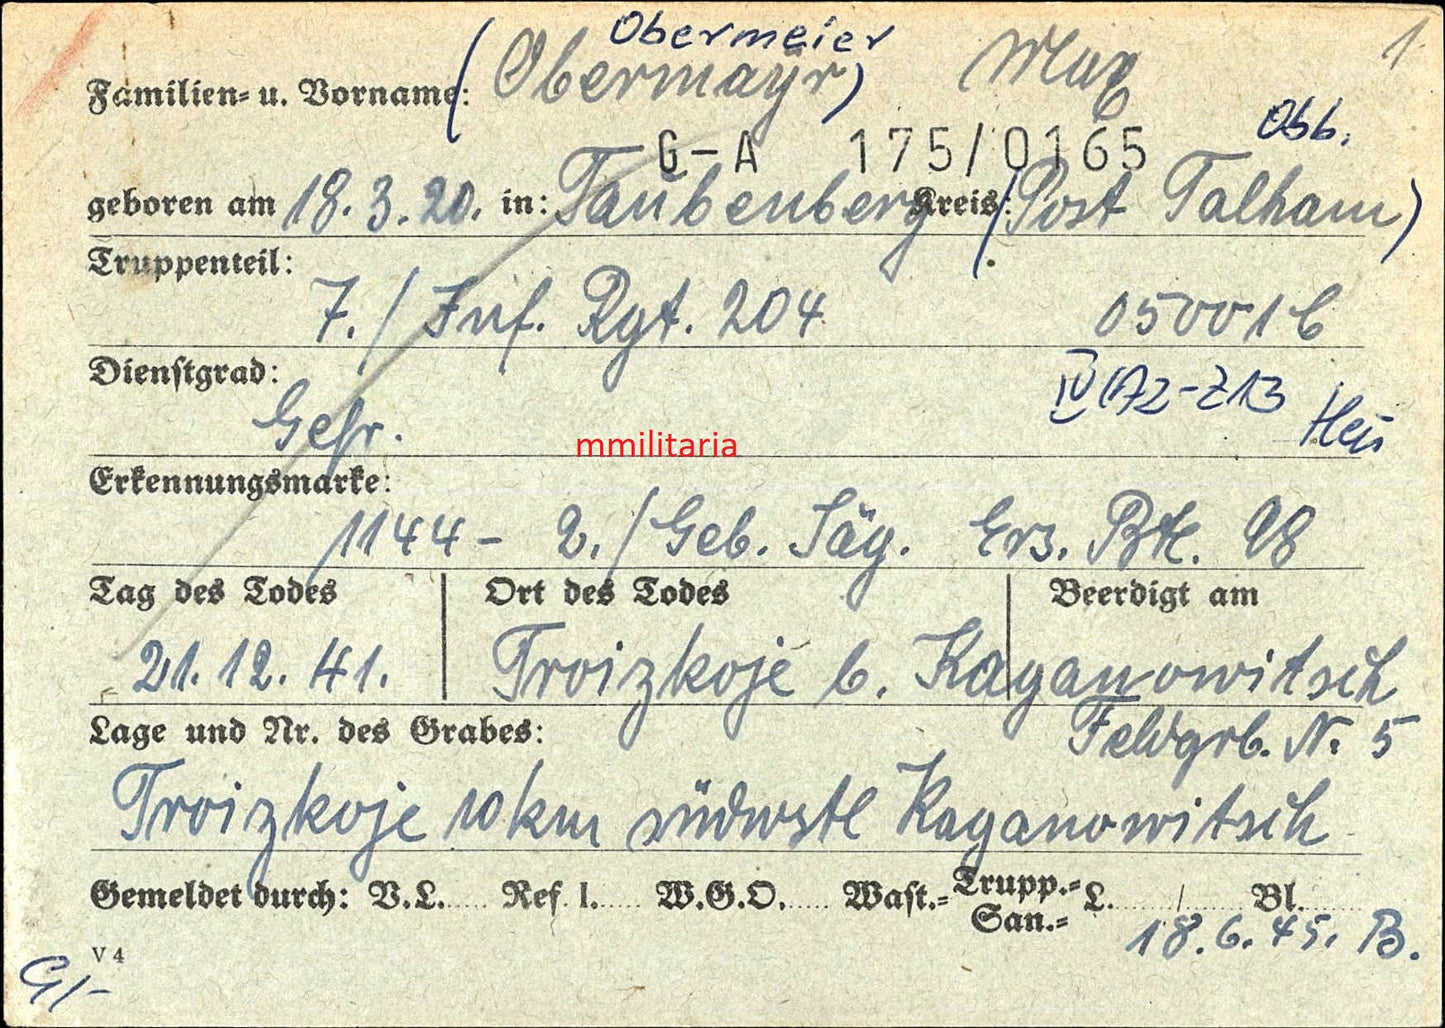 Obermeier
1
Familien= u. Vorname: (Obermayr) Max
G-A 175/0165 Obb.
geboren am 18.3.20. in: Taubenberg Kreis: (Post Talham)
Truppenteil:
7./Inf. Rgt. 204 050016
Dienstgrad:
Gefr.
mmilitaria
Erkennungsmarke:
1144- 2./Geb. Jäg. Ers. Btl. 98
Tag des Todes Ort des Todes Beerdigt am
21.12.41. Troizkoje b. Kaganowitsch
Lage und Nr. des Grabes: Feldgrb. N. 5
Troizkoje 10km südwstl Kaganowitsch
Gemeldet durch: V.L. Ref. I. W.G.O. Wast.= Trupp.= San.= L. / Bl.
18.6.45. B.
V 4